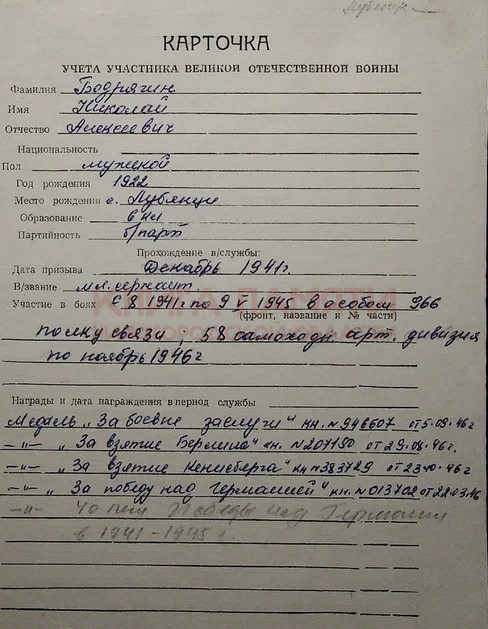 Лубянцы
КАРТОЧКА
УЧЕТА УЧАСТНИКА ВЕЛИКОЙ ОТЕЧЕСТВЕННОЙ ВОЙНЫ
Фамилия Бодрягин
Имя Николай
Отчество Алексеевич
Национальность
Пол мужской
Год рождения 1922
Место рождения с. Лубянцы
Образование 6 кл
Партийность б/парт
Прохождение в/службы:
Дата призыва Декабрь 1941г.
В/звание мл. сержант.
КНИГА ПАМЯТИ
Участие в боях с 8 1941г по 9 V 1945 в особом 966
(фронт, название и № части)
полку связи, 58 самоходн. арт. дивизия
по ноябрь 1946г
Награды и дата награждения в период службы
Медаль „За боевые заслуги" кн. №946607 от 5.09.46г
—"— „За взятие Берлина" кн. №207190 от 29.08.46г.
—"— „За взятие Кенисберга" кн №383729 от 23.10.46г
—"— „За победу над Германией" кн. №013702 от 22.03.46
—"— 40 лет Победы над Германии
в 1941-1945г.